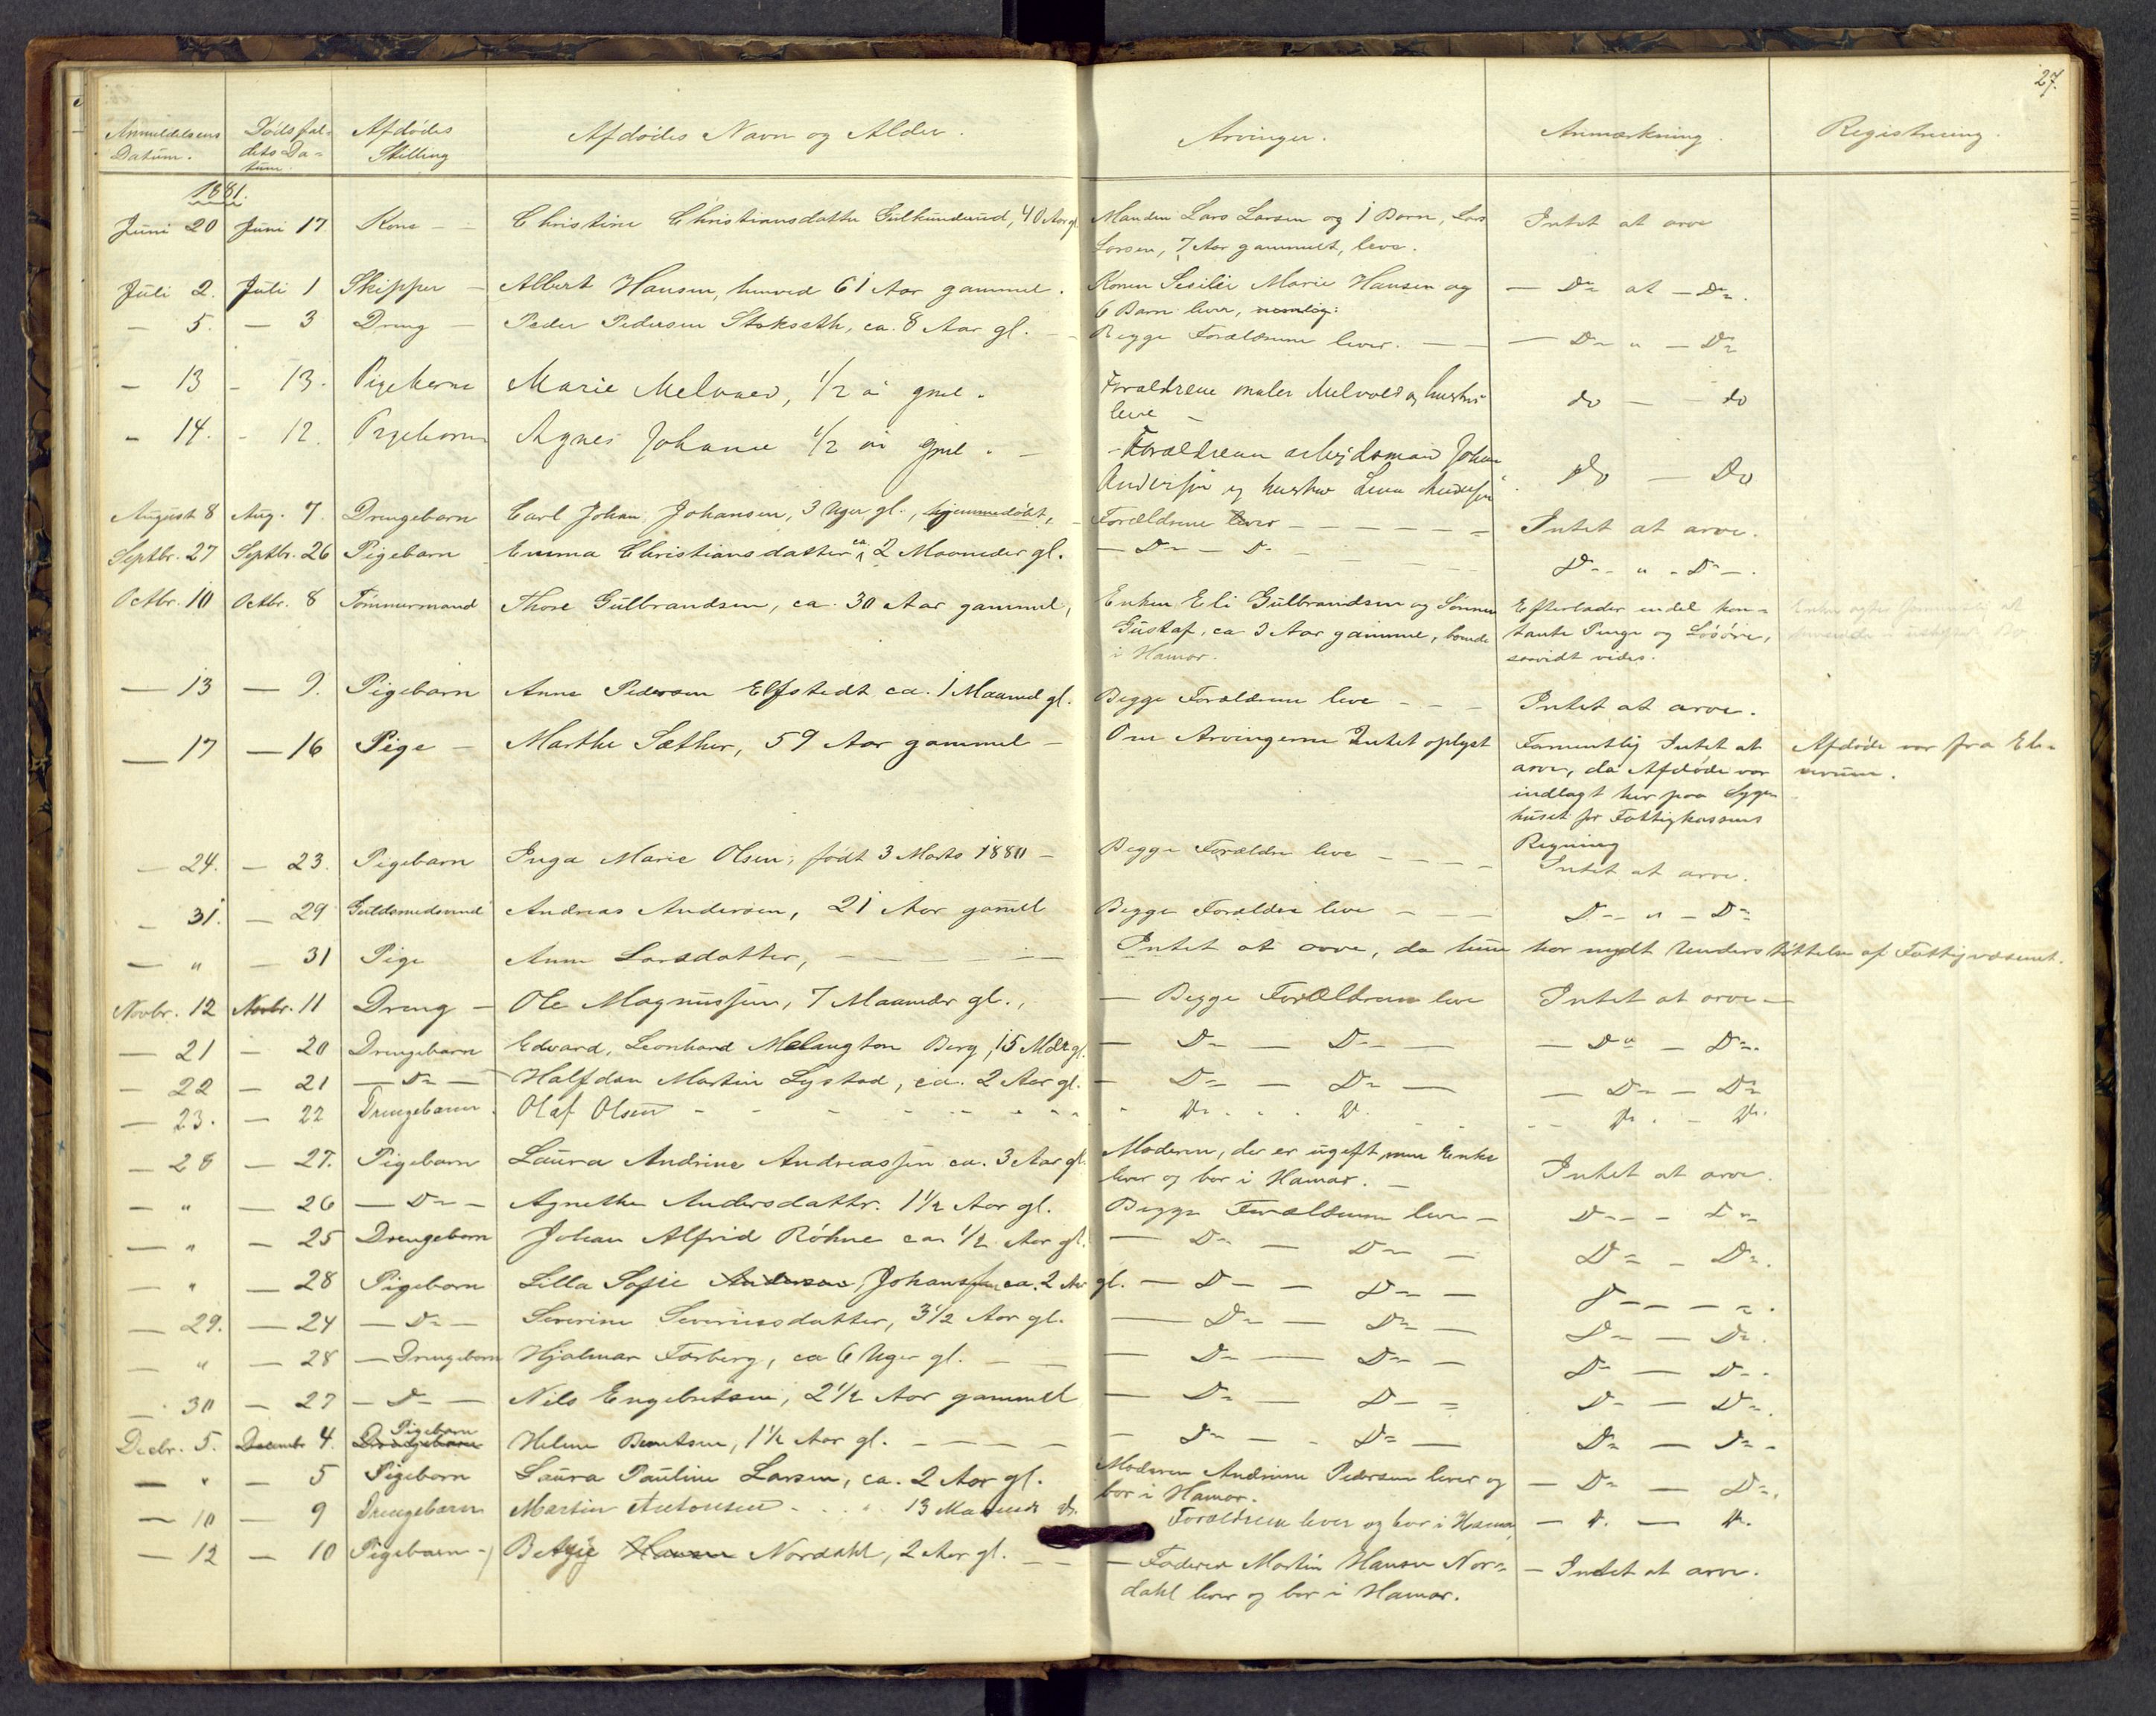 27.
Anmeldelsens Datum. Dödsfal- dets Da- tum. Afdödes Stilling Afdödes Navn og Alder. Arvinger. Anmærkning. Registrering.
1881.
Juni 20 Juni 17 Kone - - Christine Christiansdatter Gulhuusrud, 40 Aar gl. Manden Lars Larsen og 1 Barn, Lars Intet at arve
Larsen, 7 Aar gammelt, leve.
Juli 2. Juli 1 Skipper - Albert Hansen, henved 61 Aar gammel. Konen Sesilie Marie Hansen og — Do at — Do.
6 Barn lever, nemlig:
— 5. — 3 Dreng — Peder Pedersen Stokseth, ca. 8 Aar gl. - Begge Forældrene lever. — — — Do " — Do
— 13 - 13. Pigebarn Marie Melvold, 1/2 år gml. Forældrene maler Melvold og hustru do — do
leve -
- 14. - 12. Pigebarn Agnes Johanne 1/2 år gml. - - Forældrene arbejdsmand Johan Do — Do
Andersen og hustru Lena Andersen
August 8 Aug. 7. Drengebarn Carl Johan Johansen, 3 Uger gl., hjemmedöbt, - Forældrene lever - - - - - Intet at arve.
Septbr. 27 Septbr. 26 Pigebarn Emma Christiansdatter ca. 2 Maaneder gl. — Do — Do - Do - " - Do -.
Octbr. 10 Octbr. 8 Tömmermand Thore Gulbrandsen, ca. 30 Aar gammel, Enken Eli Gulbrandsen og Sönnen Efterlader endel kon- Enken
Gustaf, ca 3 Aar gammel, boende tante Penge og Lösöre,
i Hamar. saavidt vides.
— 13 — 9. Pigebarn Anne Pedersen Elfstedt ca. 1 Maaned gl. Begge Forældrene leve - - - Intet at arve.
— 17 — 16 Pige - Marthe Sæther, 59 Aar gammel - Om Arvingerne Intet oplyst Formentlig Intet at Afdöde var fra Elve-
arve, da Afdöde var rum.
indlagt her paa Syge-
huset for Fattigkassens
Regning
— 24. — 23. Pigebarn Inga Marie Olsen, födt 3 Marts 1880 - Begge Forældre leve - - - - Intet at arve.
— 31. — 29 Guldsmedsvend Andreas Andersen, 21 Aar gaml Begge Forældre leve - - - Do - " - Do
— " — 31 Pige Anne Larsdatter, - - - - Intet at arve, da hun har nydt Understöttelse af Fattigvæsenet.
Novbr. 12 Novbr. 11 Dreng - Ole Magnussen, 7 Maaneder gl., — Begge Forældrene leve Intet at arve —
— 21 — 20 Drengebarn Edvard, Leonhard Melangton Berg, 15 Mdr gl. — Do — Do — — Do — Do.
— 22 — 21 — Do — Halfdan Martin Lystad, ca. 2 Aar gl. - Do — Do — — Do — Do
— 23. — 22 Drengebarn. Olaf Olsen - - - - - - - Do. - - Do. - - Do. - Do.
— 28 — 27. Pigebarn Laura Andrine Andreassen ca. 3 Aar gl. Moderen, der er ugift, men Enke Intet at arve.
lever og bor i Hamar. -
— " — 26 — Do — Agnethe Andersdatter. 1 1/2 Aar gl. Begge Forældrene leve — Do - - Do
— " — 25 Drengebarn Johan Alfred Röhne ca 1/2 Aar gl. — Do — Do — Do — Do.
— " — 28 Pigebarn Lilla Sofie Andersen Johansen ca. 2 Aar gl. — Do — Do — Do - - - .
— 29. — 24 — Do — Severine Severinsdatter, 3 1/2 Aar gl. — Do — Do — Do — Do.
— " — 28 — Drengebarn Hjalmar Forberg, ca 6 Uger gl. - - — Do — Do — Do — Do.
— 30 — 27 — Do — Nils Engebretsen, 2 1/2 Aar gammel — Do — Do - Do — Do.
Decbr. 5. Decembr 4. Drengebarn Pigebarn Helene Berntsen, 1 1/2 Aar gl. - - - - - Do — - Do — Do — Do -
— " — 5 Pigebarn Laura Pauline Larsen, ca. 2 Aar gl. Moderen Andrine Pedersen lever og — Do — Do.
bor i Hamar.
— 10 — 9 Drengebarn Martin Antonsen - . . . 13 Maaneder gl. Forældrene lever og bor i Hamar — Do. — Do.
— 12 — 10 Pigebarn - Betzie Hansen Nordahl, 2 Aar gl. - - — Faderen Martin Hansen Nor- — Intet at arve.
dahl lever og bor i Hamar.